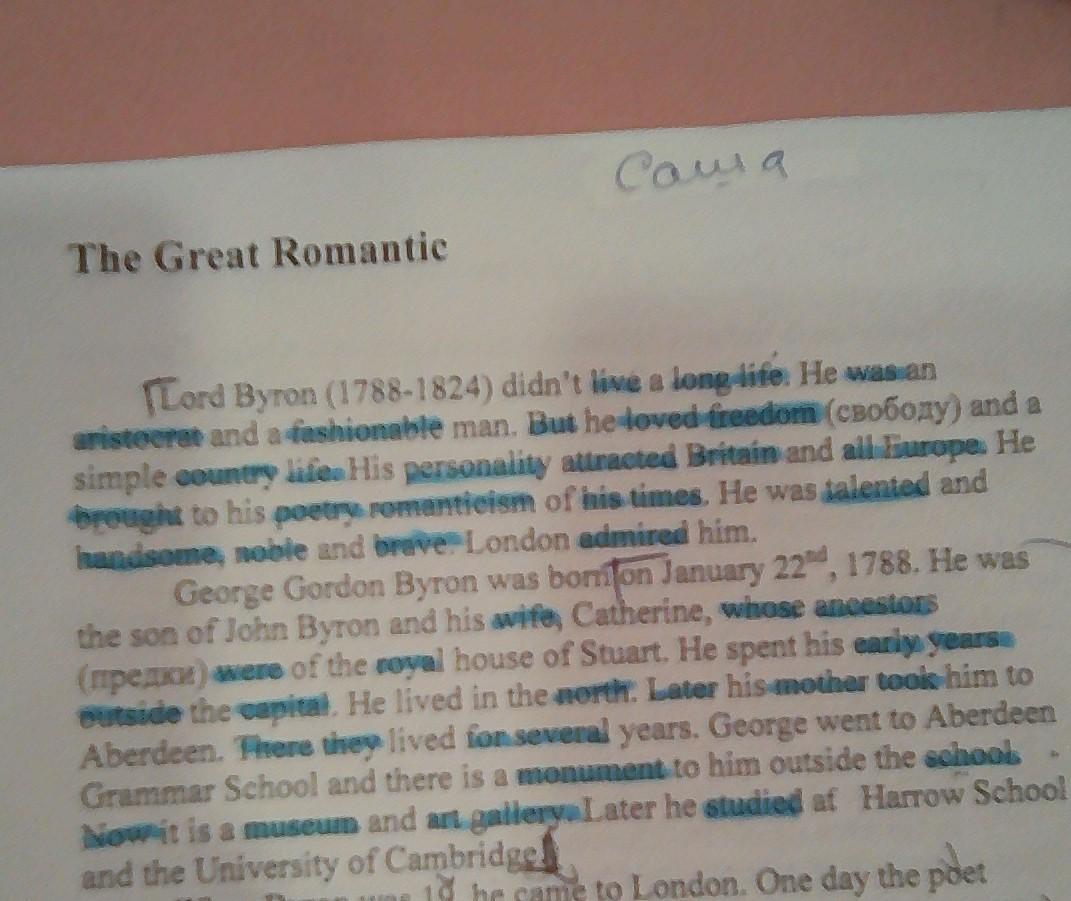 Саша
The Great Romantic
Lord Byron (1788-1824) didn't live a long life. He was an
aristocrat and a fashionable man. But he loved freedom (свободу) and a
simple country life. His personality attracted Britain and all Europe. He
brought to his poetry romanticism of his times. He was talented and
handsome, noble and brave. London admired him.
George Gordon Byron was born on January 22nd, 1788. He was
the son of John Byron and his wife, Catherine, whose ancestors
(предки) were of the royal house of Stuart. He spent his early years
outside the capital. He lived in the north. Later his mother took him to
Aberdeen. There they lived for several years. George went to Aberdeen
Grammar School and there is a monument to him outside the school.
Now it is a museum and art gallery. Later he studied at Harrow School
and the University of Cambridge.
Byron was 19 he came to London. One day the poet